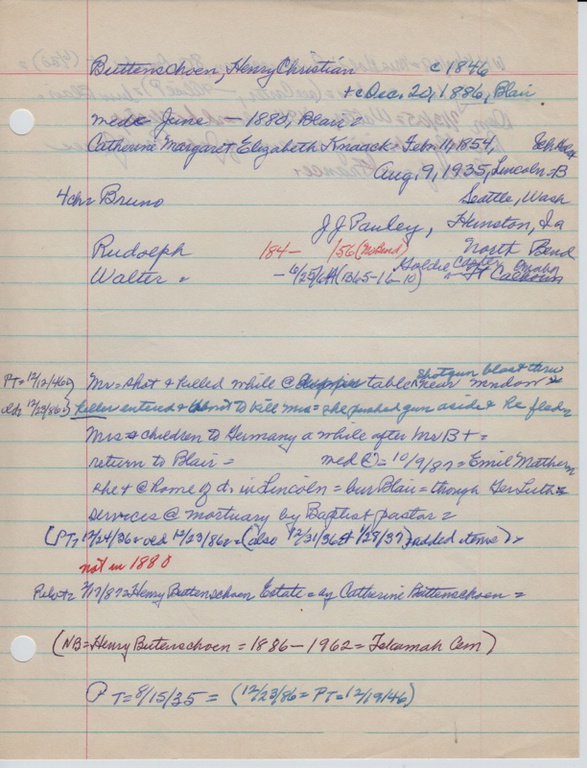 Buttenschoen, Henry Christian c 1846
+ c Dec. 20, 1886, Blair
med June - 1880, Blair =
Catherine Margaret Elizabeth Knaack = Febr. 11, 1854,
Aug. 9, 1935, Lincoln = B
4 chr Bruno Seattle, Wash
J J Pauley, Hinston, Ia
Rudolph 184- /56 (No. Bend) North Bend
Walter = - 6/25/64 (B65-16-10) Goldie Cooper Omaha Ft Calhoun
PT = 12/12/46
Mr = shot & killed while @ table near window = shotgun blast thru
12/23/86 Killer entered & to kill Mrs = she pushed gun aside & he fled =
Mrs & children to Germany a while after Mr B + =
return to Blair = med ② = 10/9/87 = Emil Matthern
she + @ home of d. in Lincoln = bur Blair = though Ger Luth =
services @ mortuary by Baptist pastor =
(PT = 12/24/36 = 12/23/86 = (also 12/31/36 & 1/28/37) added items) =
not in 1880
2/17/87 = Henry Buttenschoen Estate = by Catherine Buttenschoen =
(NB = Henry Butenschoen = 1886 - 1962 = Tekamah Cem)
PT = 8/15/35 = (12/23/86 = PT = 12/19/46)